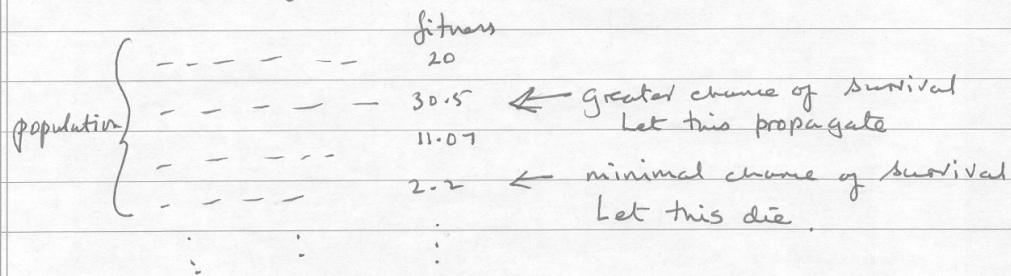 fitness
20
30.5 ← greater chance of survival
Let this propagate
population
11.07
2.2 ← minimal chance of survival
Let this die.